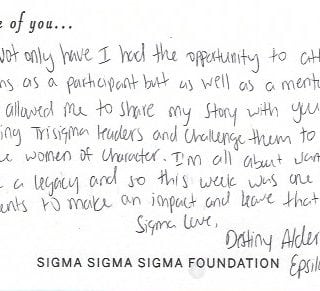 e of you...
Not only have I had the opportunity to att
ns as a participant but as well as a mento
allowed me to share my story with you
ing Trisigma leaders and challenge them to
e women of character. I'm all about
e a legacy and so this week was one
ents to make an impact and leave that
Sigma Love,
Destiny Alder
SIGMA SIGMA SIGMA FOUNDATION Epsil